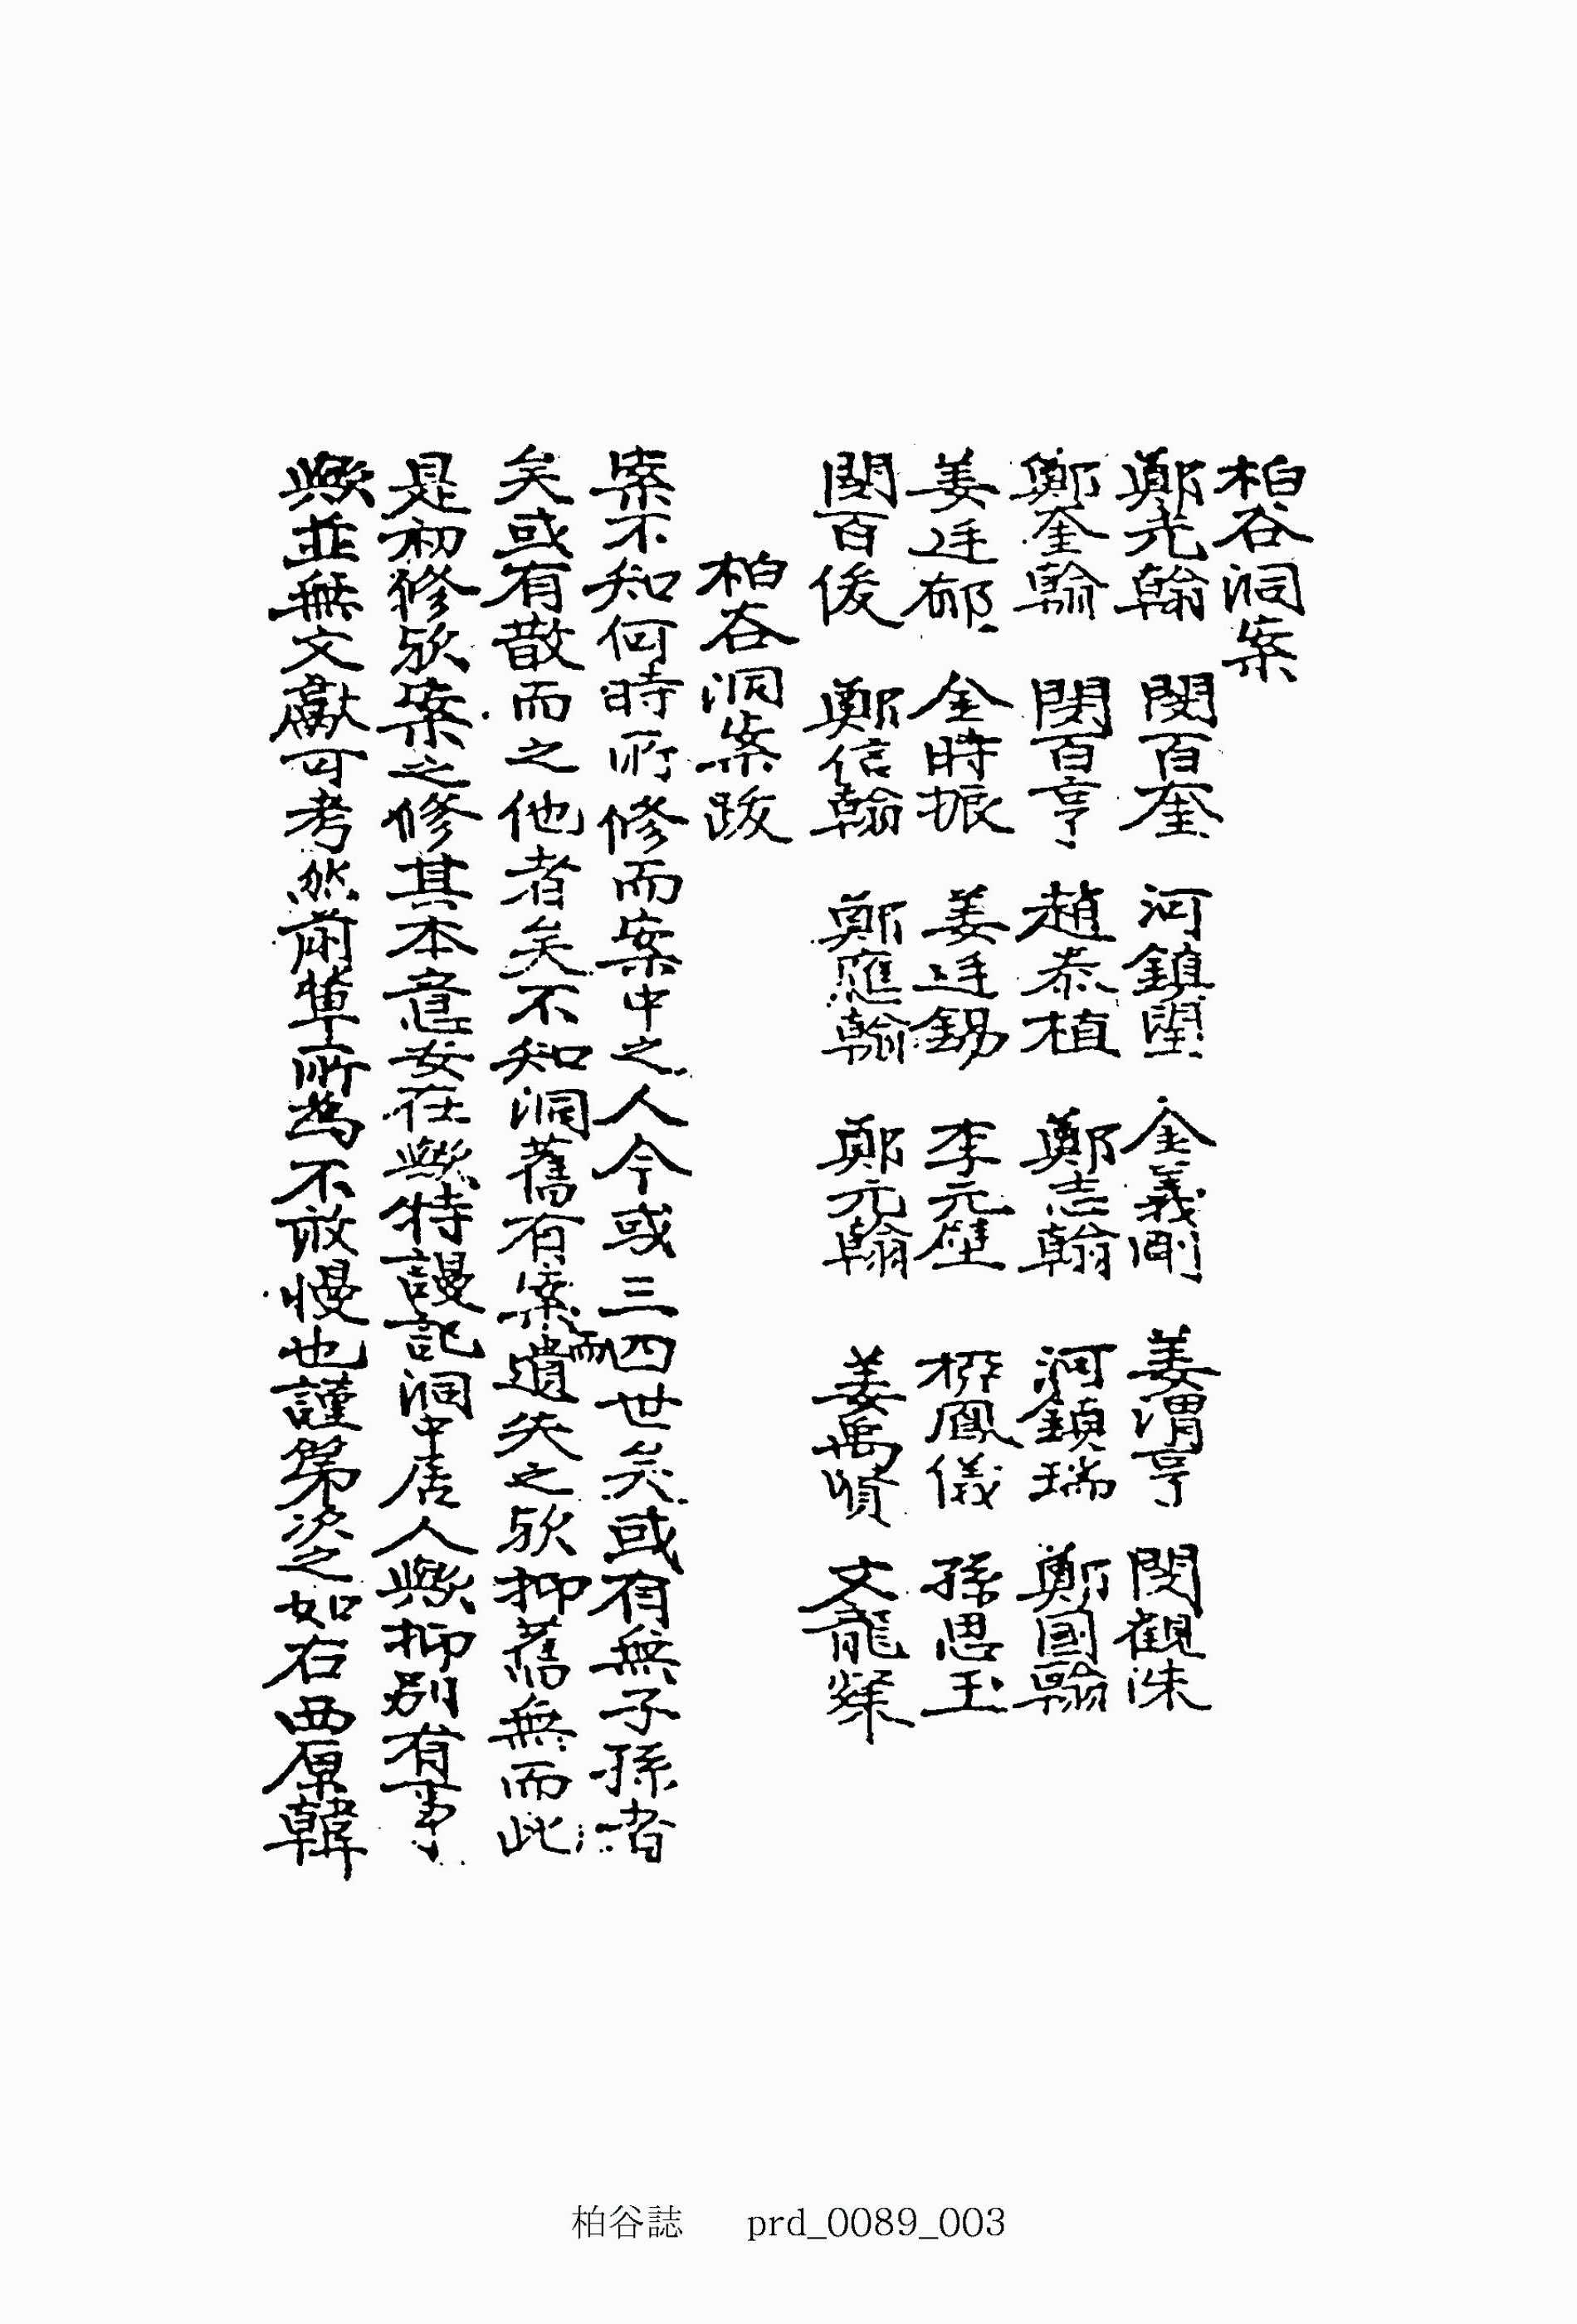 柏谷洞案
鄭光翰 閔百奎 河鎭闓 金義剛 姜渭亨 閔觀洙
鄭奎翰 閔百亨 趙泰植 鄭志翰 河鎭瑞 鄭國翰
姜廷郁 金時振 姜廷錫 李元壁 鳳儀 孫思玉
閔百俊 鄭信翰 鄭應翰 鄭元翰 姜禹賢 文龍燦
柏谷洞案跋
案不知何時所修而案中之人今或三四世矣或有無子孫者
矣或有散而之他者矣不知洞舊有案而遺失之歟抑舊無而此
是初修歟案之修其本意安在歟特謾記洞中居人歟抑別有事
歟並無文獻可考然前輩所爲不敢慢也謹第次之如右西原韓
柏谷誌 prd_0089_003